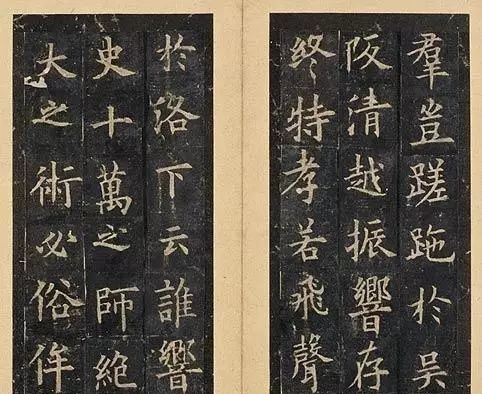 羣豈蹉跎於吴
阪清越振響存
終特孝若飛聲
於洛下云誰響
史十萬之師絕
大之術必俗侔